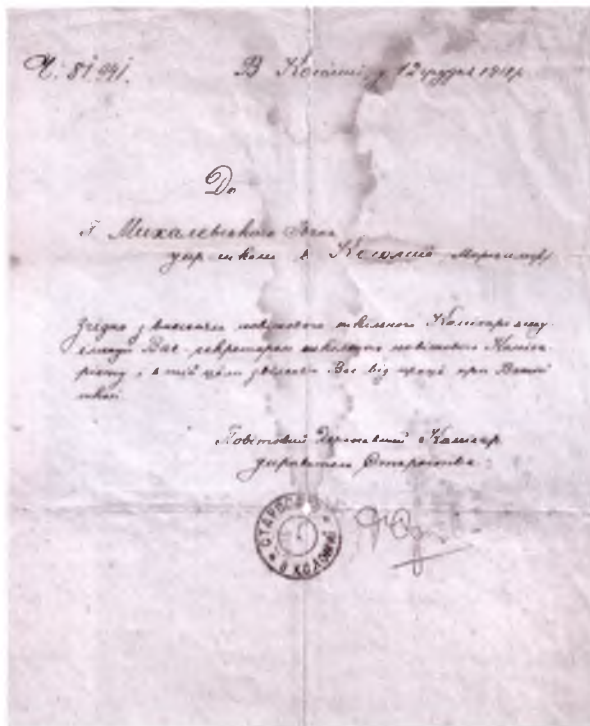 В Коломиї, 12 грудня 1918 р
До
П Михалевського
упр школи в Коломиї
Згідно з внеском повітового шкільного Комісаріяту
Вас секретарем шкільного повітового Коміса
ріяту, в тій ціли звільняю Вас від праці при Вашій
школі.
Повітовий Державний Комісар
управитель Староства:
СТАРОСТВО * В КОЛОМИЇ *